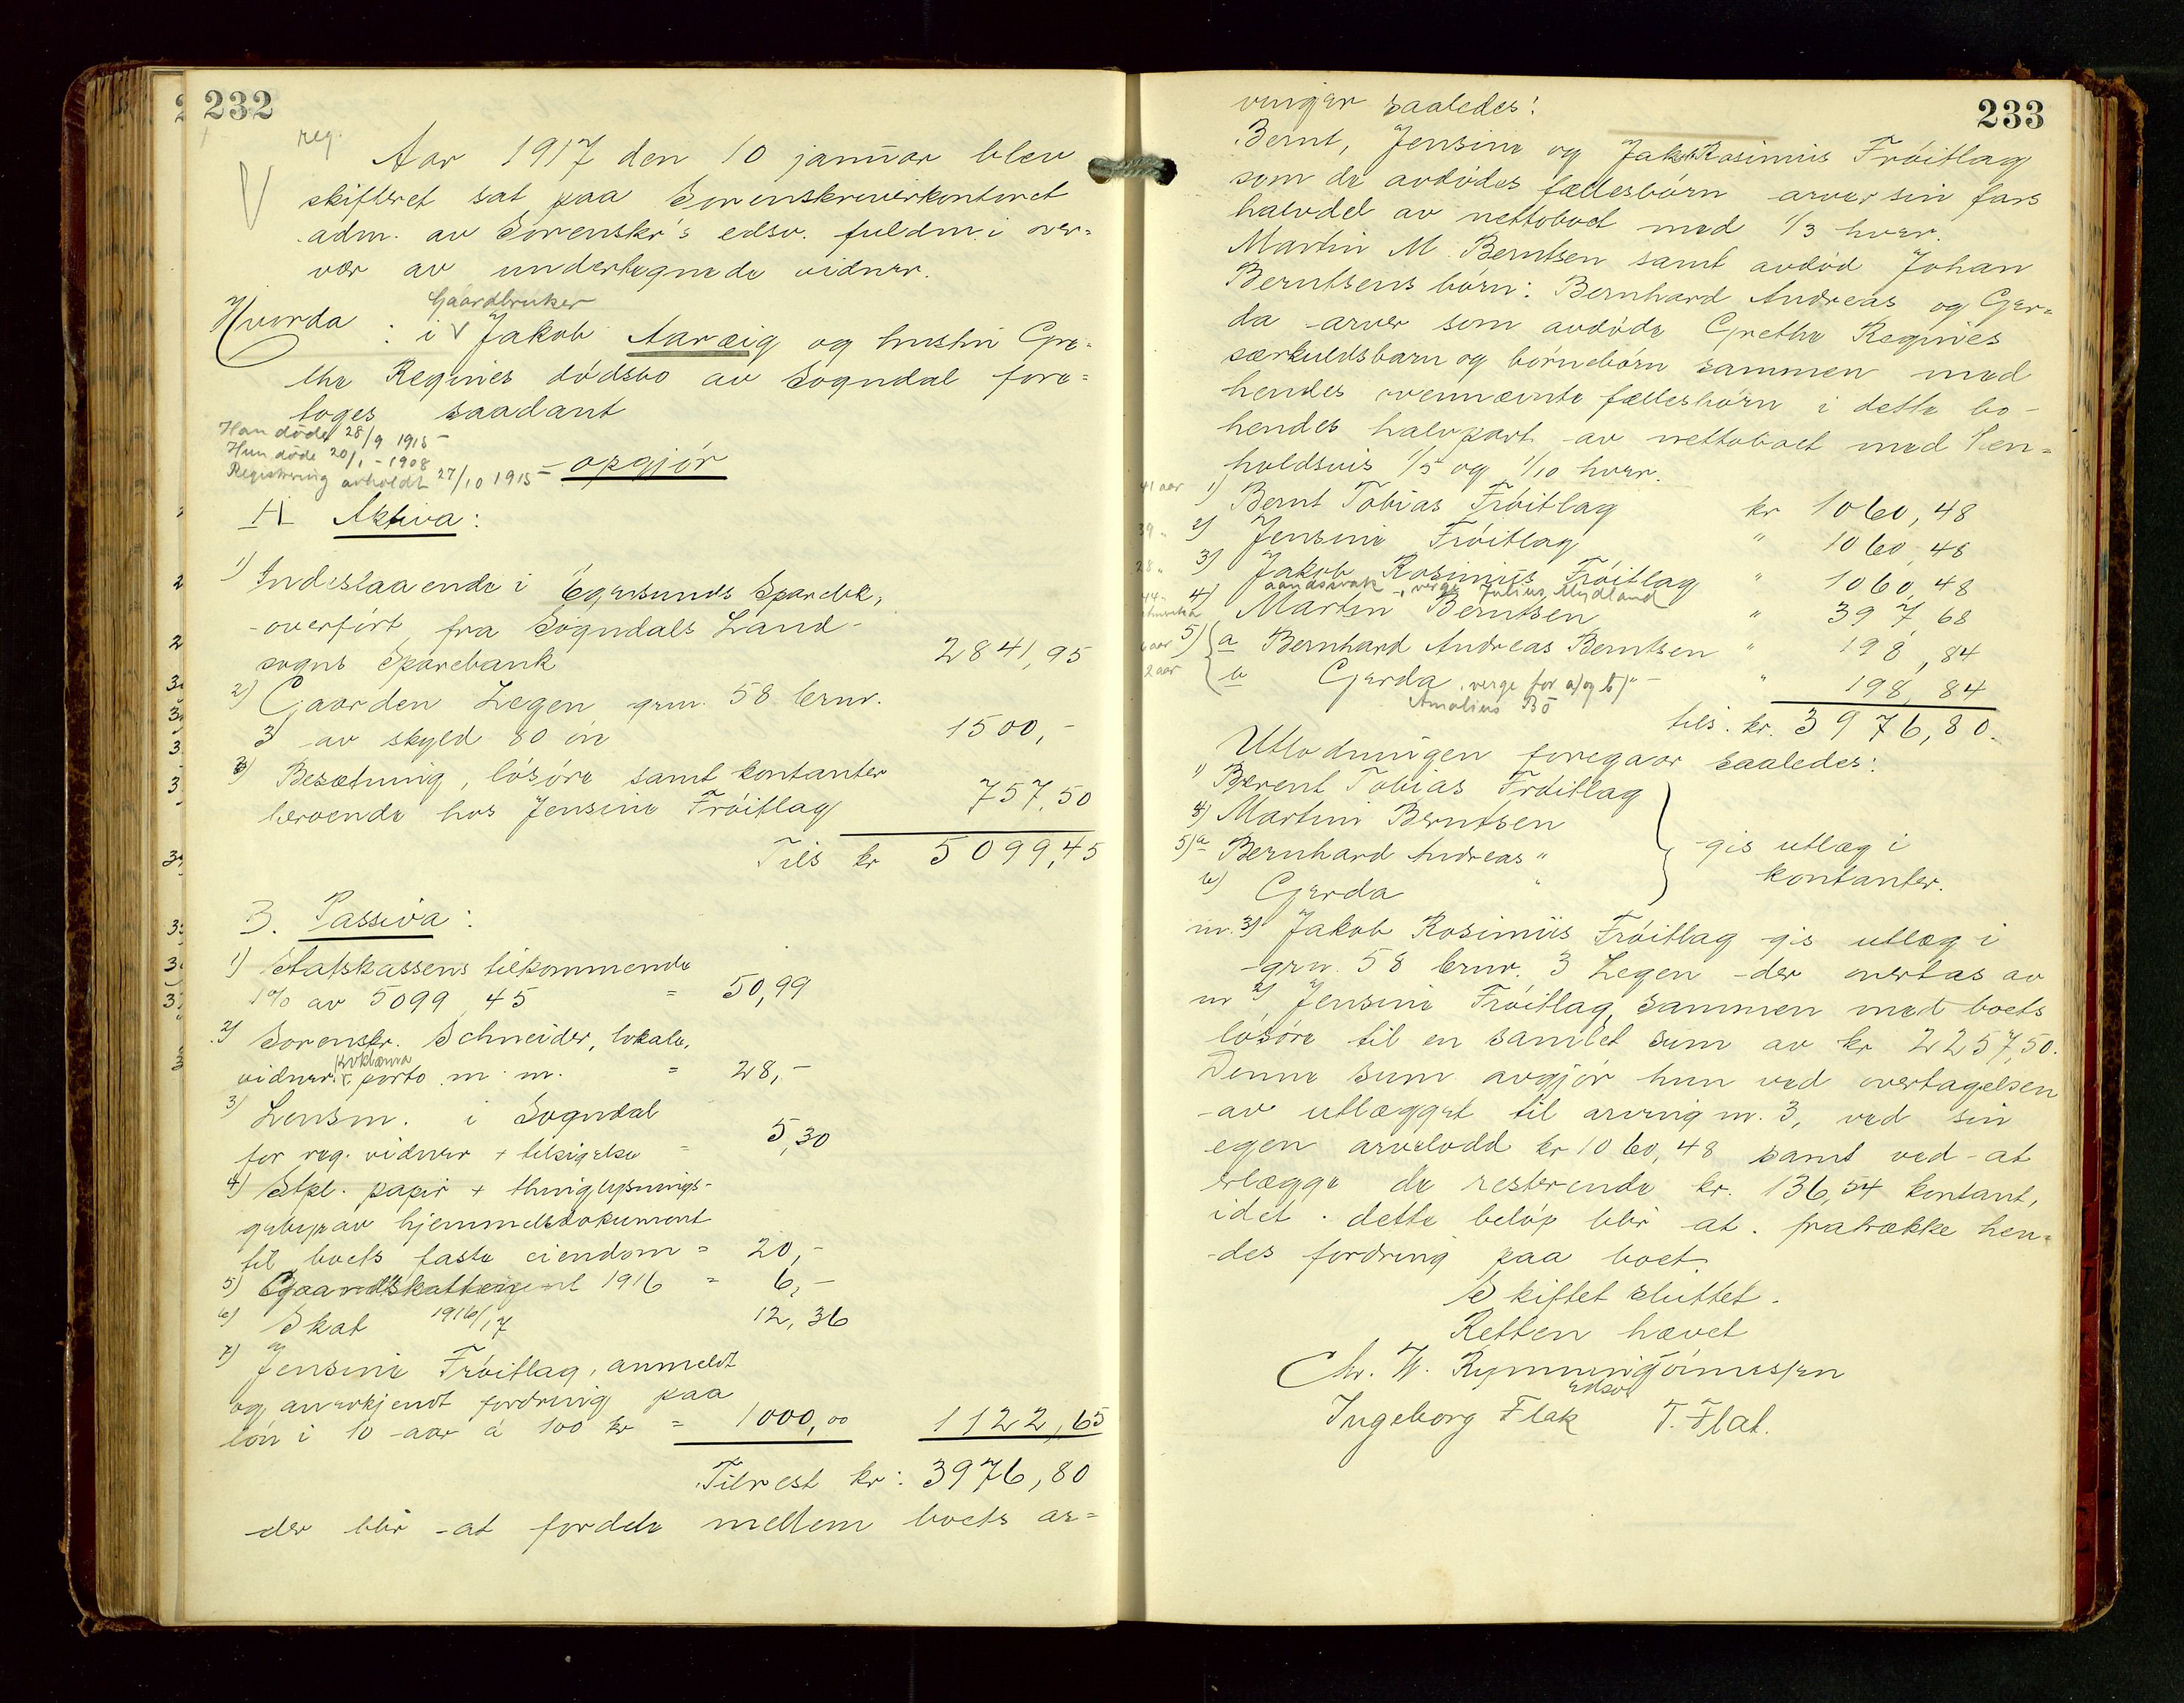 232
reg.
Aar 1917 den 10 januar blev
skifteret sat paa Sorenskriverkontoret
adm. av Sorenskr's edsv. fuldm. i over=
vær av undertegnede vidner.
Gaardbruker
Hvorda : i V Jakob Aaræig og hustru Gre=
the Regines dødsbo av Sogndal fore=
toges saadant
Han døde 28/9 1915 -
Hun døde 20/1 - 1908
Registrering avholdt 27/10 1915 -
opgjør
A Aktiva:
1) Indestaaende i Egersunds Sparebk,
overført fra Sogndals Land-
sogns Sparebank 2841,95
2) Gaarden Legen grn. 58 brnr.
3 av skyld 80 øre 1500,-
3) Besætning, løsøre samt kontanter
beroende hos Jensine Frøitlag 757,50
Tils kr 5099,45
B. Passiva:
1) Statskassens tilkommende
1% av 5099,45 = 50,99
2) Sorenskr. Schneider, lokale,
proklama
vidner, porto m. m. = 28,-
3) Lensm. i Sogndal
for reg. vidner + tilsigelse = 5,30
4) Stpl. papir + thinglysnings-
gebyr av hjemmelsdokument
til boets faste eiendom = 20,-
5) 1916 = 6,-
6) Skat 1916/17 12,36
7) Jensine Frøitlag, anmeldt
og anerkjendt fordring paa
løn i 10 aar á 100 kr = 1000,00 1122,65
Tilrest kr: 3976,80
der blir at fordele mellem boets ar=
233
vinger saaledes:
Bernt, Jensine og Jakob Rosinius Frøitlag
som de avdødes fællesbørn arver sin fars
halvdel av nettoboet med 1/3 hver.
Martin M. Berntsen samt avdød Johan
Berntsens børn: Bernhard Andreas og Ger=
da arver som avdøde Grethe Regines
særkuldsbarn og børnebørn sammen med
hendes ovennævnte fællesbørn i dette bo -
hendes halvpart av nettoboet med hen=
holdsvis 1/5 og 1/10 hver.
41 aar 1) Bernt Tobias Frøitlag kr 1060,48
39 " 2) Jensine Frøitlag " 1060,48
28 " 3) Jakob Rosinius Frøitlag " 1060,48
aandssvak -, verge Julius Mydland
44 " 4) Martin Berntsen " 397,68
5) a Bernhard Andreas Berntsen " 198,84
b Gerda, verge for a) og b) " - " 198,84
Amalius Bø
tils. kr. 3976,80.
Utlodningen foregaar saaledes:
1) Berent Tobias Frøitlag
4) Martin Berntsen
5) a Bernhard Andreas "
b) Gerda "
gis utlæg i
kontanter.
nr. 3) Jakob Rosinius Frøitlag gis utlæg i
grn. 58 brnr. 3 Legen der overtas av
nr 2) Jensine Frøitlag, sammen med boets
løsøre til en samlet sum av kr 2257,50.
Denne sum avgjør hun ved overtagelsen
av utlægget til arving nr. 3, ved sin
egen arvelodd kr 1060,48 samt ved at
erlægge de resterende kr. 136,54 kontant,
idet dette beløp blir at fratrække hen=
des fordring paa boet.
Skiftet sluttet.
Retten hævet
Chr. W.
edsv
Ingeborg Flak T. Flat.